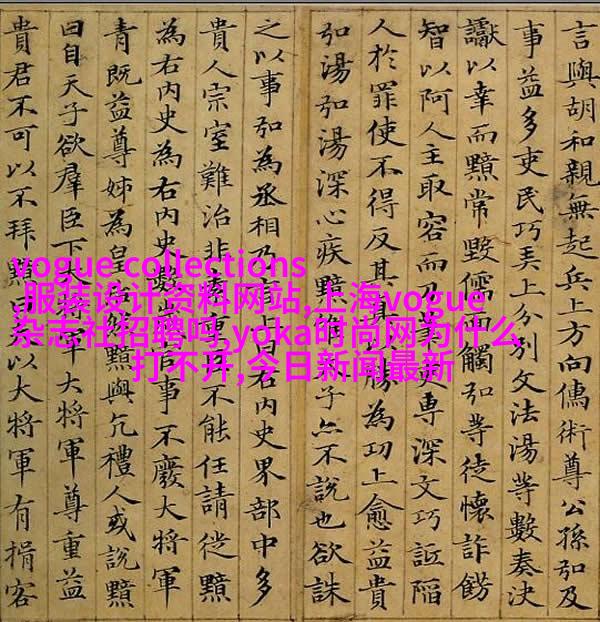 言與胡和親無起兵上方向儒術尊公孫弘及
事益多吏民巧弄上分別文法湯等數奏決
讞以幸而黯常毀儒面觸弘等徒懷詐飾
智以阿人主取容而刀吏專深文巧詆陷
人於罪使不得反其勝為功上愈益貴
弘湯弘湯深心疾黯子亦不說也欲誅
之以事弘為丞相乃右內史界部中多
貴人宗室難治非重不能任請徙黯
為右內史為右內史歲官事不廢大將軍
青既益尊姊為皇然黯與亢禮人或說黯
曰自天子欲羣臣下大將軍大將軍尊重益
貴君不可以不拜黯曰以大將軍有揖客
vogue collections
服装设计资料网站,上海vogue
杂志社招聘吗,yoka时尚网为什么
打不开,今日新闻最新